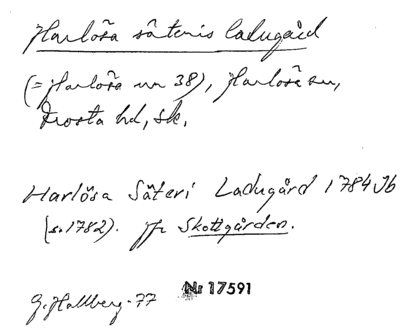 Harlösa säteris ladugård
(= Harlösa nr 38), Harlösa sn,
Frosta hd, Sk.
Harlösa Säteri Ladugård 1784 Jb
(s. 1782). Jfr Skottgården.
G. Hallberg -77 Nr 17591